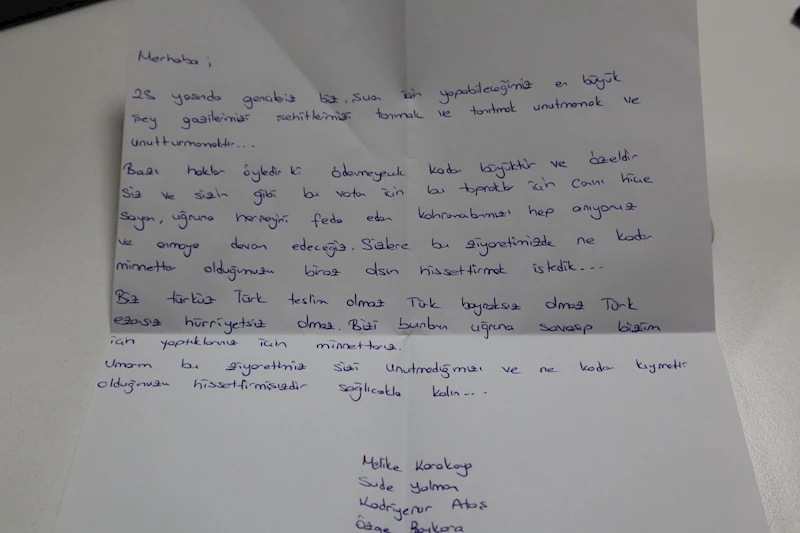 Merhaba ;
23 yaşında gençleriz biz, şuan için yapabileceğimiz en büyük
şey gazilerimizi şehitlerimizi tanımak ve tanıtmak unutmamak ve
unutturmamaktır...
Bazı haklar öyledir ki ödenmeyecek kadar büyüktür ve özeldir
Siz ve sizin gibi bu vatan için bu topraklar için Canını hiçe
sayan, uğruna herşeyini feda eden kahramanlarımızı hep anıyoruz
ve anmaya devam edeceğiz. Sizlere bu ziyaretimizde ne kadar
minnettar olduğumuzu biraz olsun hissettirmek istedik...
Biz türküz Türk teslim olmaz Türk bayraksız olmaz Türk
ezansız hürriyetsiz olmaz. Bizi bunların uğruna savaşıp bizim
için yaptıklarınız için minnettarız.
Umarım bu ziyaretimiz sizi unutmadığımızı ve ne kadar kıymetli
olduğunuzu hissettirmişizdir sağlıcakla kalın...
Melike Karakaya
Sude Yalman
Kadriyenur Ataş
Özge Baykara